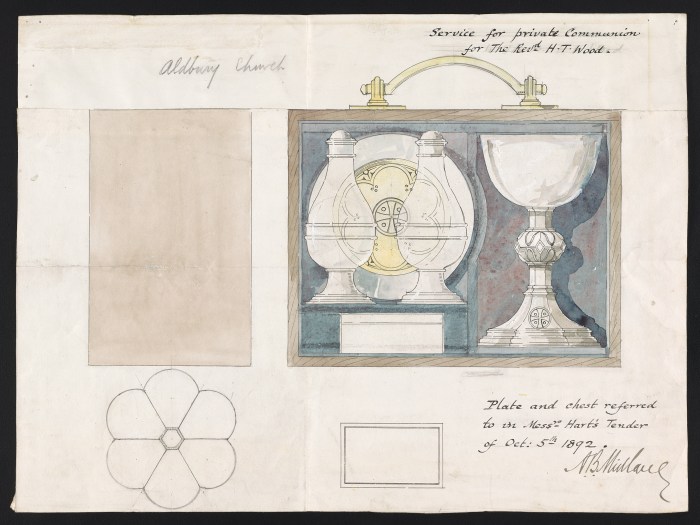 Service for private Communion
for The Revd. H. T. Wood.
Aldbury Church
Plate and chest referred
to in Messrs. Hart's Tender
of Oct: 5th 1892.